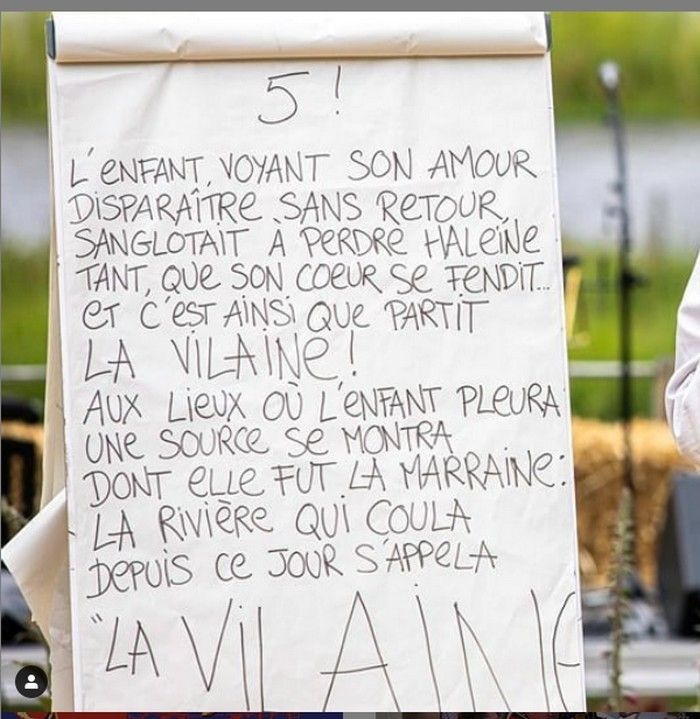 5!
L'ENFANT, VOYANT SON AMOUR
DISPARAÎTRE SANS RETOUR,
SANGLOTAIT À PERDRE HALEINE
TANT, QUE SON COEUR SE FENDIT...
ET C'EST AINSI QUE PARTIT
LA VILAINE!
AUX LIEUX OÙ L'ENFANT PLEURA
UNE SOURCE SE MONTRA
DONT ELLE FUT LA MARRAINE:
LA RIVIÈRE QUI COULA
DEPUIS CE JOUR S'APPELA
"LA VILAINE